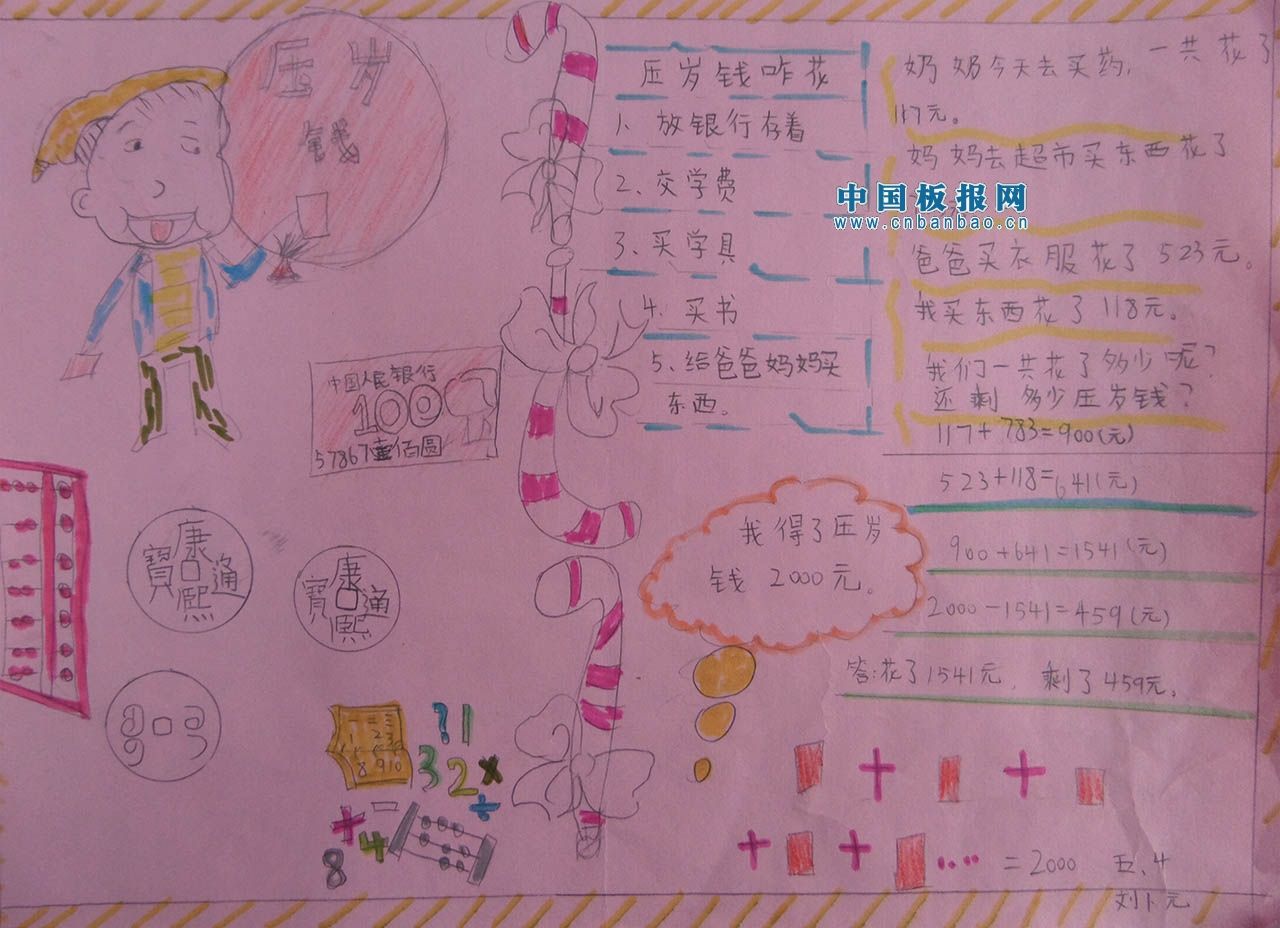 压岁
钱
压岁钱咋花
1、放银行存着
2、交学费
3、买学具
4、买书
5、给爸爸妈妈买
东西。
奶奶今天去买药,一共花了
117元。
妈妈去超市买东西花了
爸爸买衣服花了523元。
我买东西花了118元。
我们一共花了多少呢?
还剩多少压岁钱?
117+783=900(元)
523+118=641(元)
900+641=1541(元)
2000-1541=459(元)
答:花了1541元,剩了459元。
我得了压岁
钱2000元。
中国板报网
www.cnbanbao.cn
中国人民银行
100
57867壹佰圆
康熙通寶
康熙通寶
8 9 10
? 1
3 2 ×
÷
+ - 4
8
+ +
+ + = 2000
五、4